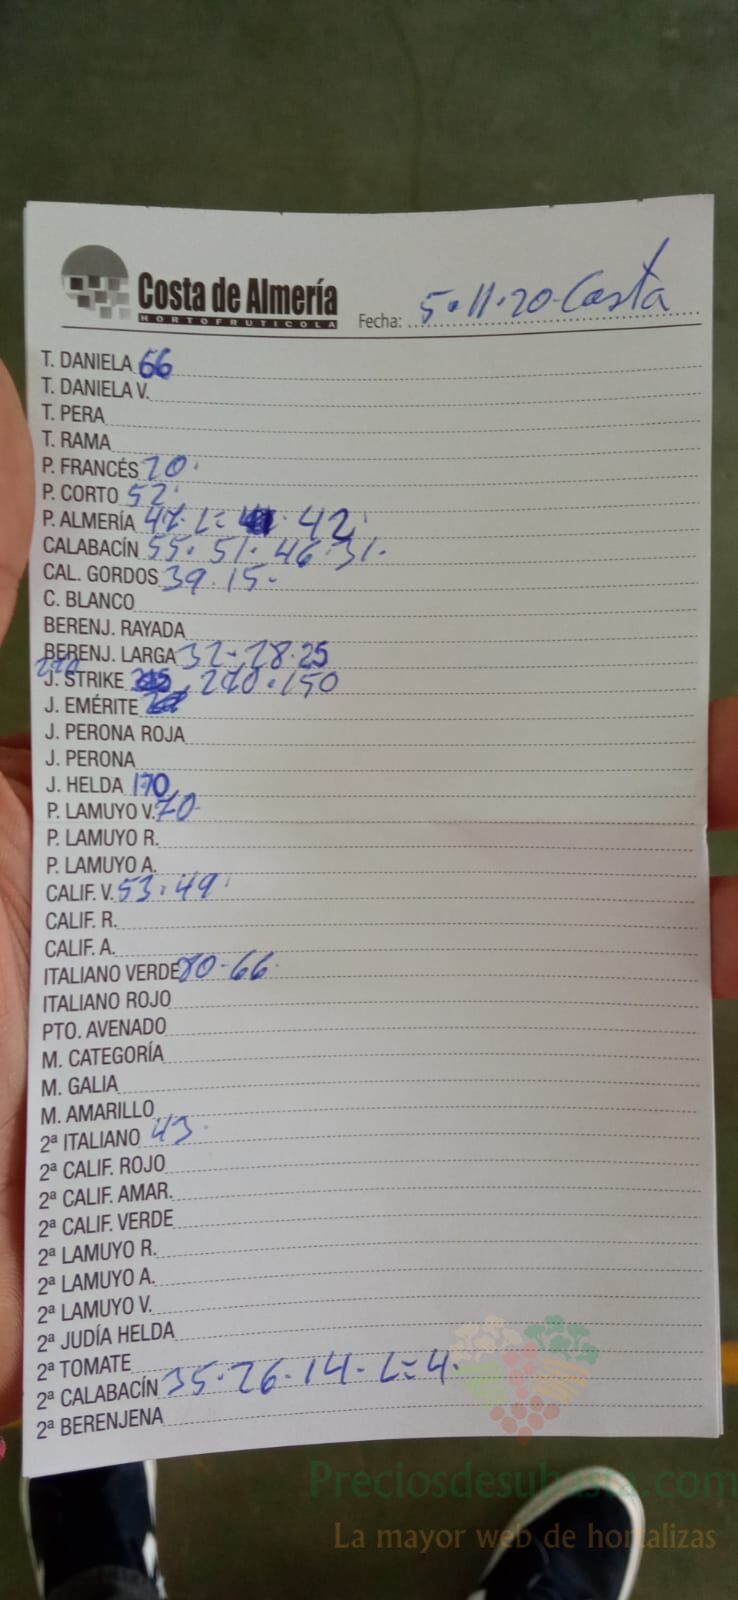 Costa de Almería
HORTOFRUTICOLA
Fecha: 5·11·20 Costa
T. DANIELA 66
T. DANIELA V.
T. PERA
T. RAMA
P. FRANCÉS 20·
P. CORTO 52·
P. ALMERÍA 47· L= 42·
CALABACÍN 55· 51· 46· 31·
CAL. GORDOS 39·15·
C. BLANCO
BERENJ. RAYADA
BERENJ. LARGA 32·28·25
220
J. STRIKE 210·150
J. EMÉRITE
J. PERONA ROJA
J. PERONA
J. HELDA 170
P. LAMUYO V. 70·
P. LAMUYO R.
P. LAMUYO A.
CALIF. V. 53·49·
CALIF. R.
CALIF. A.
ITALIANO VERDE 80·66·
ITALIANO ROJO
PTO. AVENADO
M. CATEGORÍA
M. GALIA
M. AMARILLO
2ª ITALIANO 43·
2ª CALIF. ROJO
2ª CALIF. AMAR.
2ª CALIF. VERDE
2ª LAMUYO R.
2ª LAMUYO A.
2ª LAMUYO V.
2ª JUDÍA HELDA
2ª TOMATE
2ª CALABACÍN 35·26·14· L=4·
2ª BERENJENA
Preciosdesubasta.com
La mayor web de hortalizas